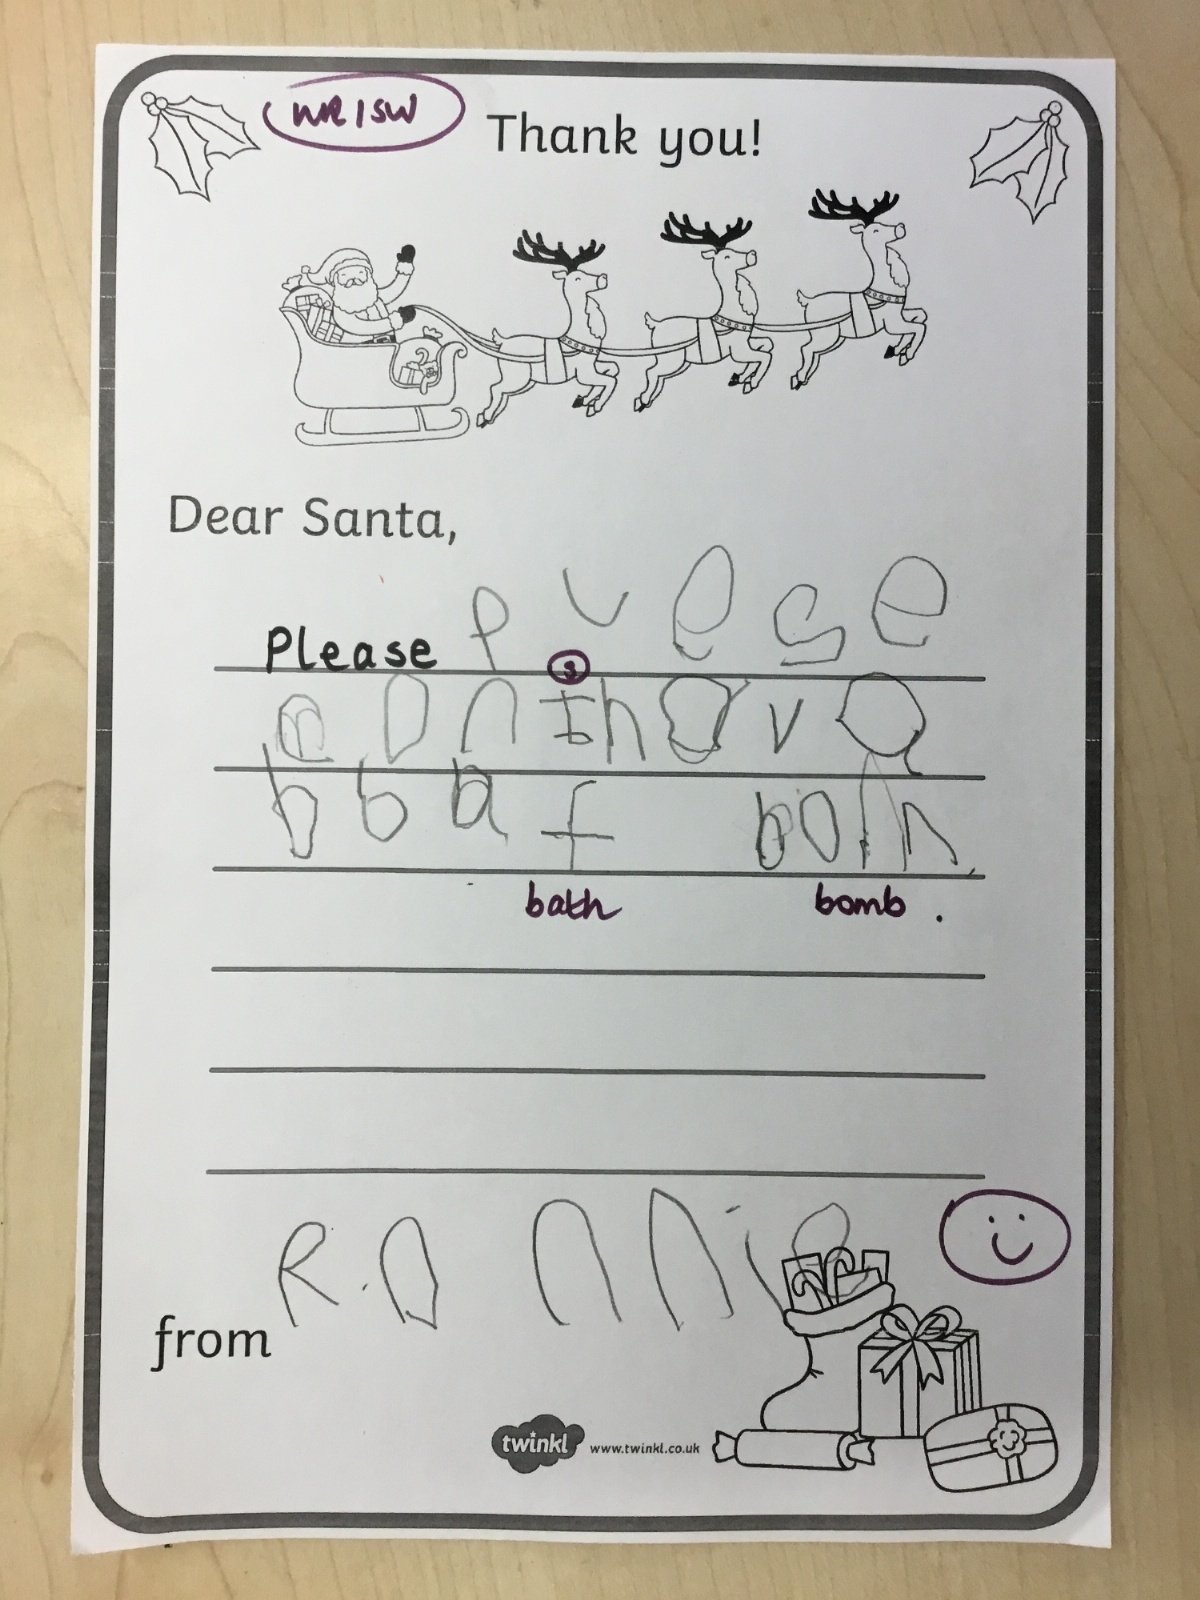 WR/SW
Thank you!
Dear Santa,
Please plese
can I hava
s
b baf bom
bath bomb.
from Ronnie
twinkl www.twinkl.co.uk